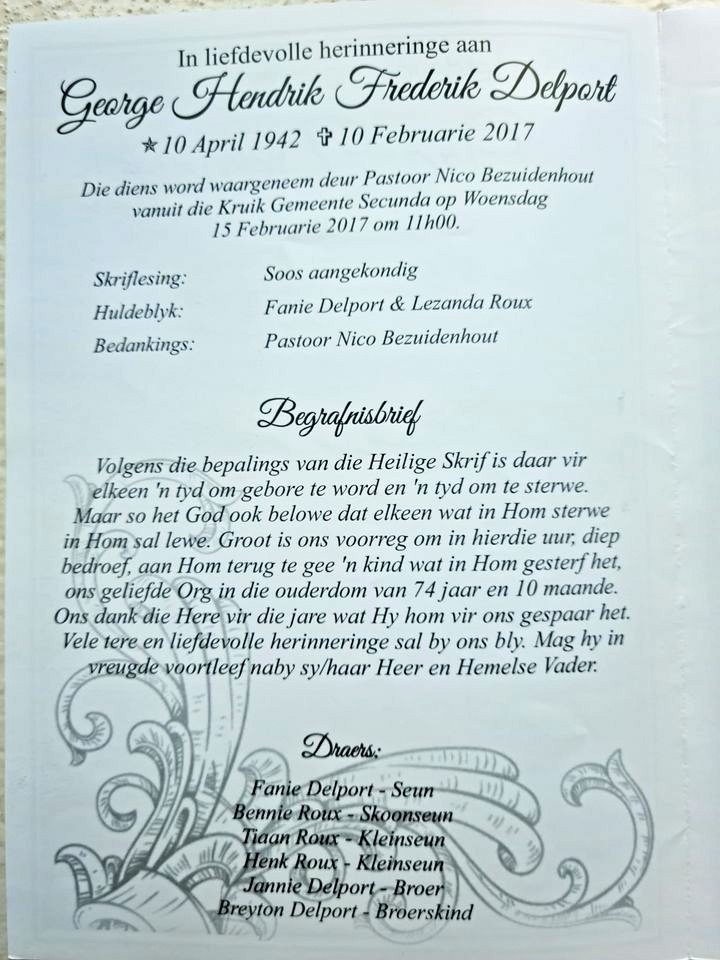 In liefdevolle herinneringe aan
George Hendrik Frederik Delport
✯10 April 1942 ✞10 Februarie 2017
Die diens word waargeneem deur Pastoor Nico Bezuidenhout
vanuit die Kruik Gemeente Secunda op Woensdag
15 Februarie 2017 om 11h00.
Skriflesing: Soos aangekondig
Huldeblyk: Fanie Delport & Lezanda Roux
Bedankings: Pastoor Nico Bezuidenhout
Begrafnisbrief
Volgens die bepalings van die Heilige Skrif is daar vir
elkeen 'n tyd om gebore te word en 'n tyd om te sterwe.
Maar so het God ook belowe dat elkeen wat in Hom sterwe
in Hom sal lewe. Groot is ons voorreg om in hierdie uur, diep
bedroef, aan Hom terug te gee 'n kind wat in Hom gesterf het,
ons geliefde Org in die ouderdom van 74 jaar en 10 maande.
Ons dank die Here vir die jare wat Hy hom vir ons gespaar het.
Vele tere en liefdevolle herinneringe sal by ons bly. Mag hy in
vreugde voortleef naby sy/haar Heer en Hemelse Vader.
Draers:
Fanie Delport - Seun
Bennie Roux - Skoonseun
Tiaan Roux - Kleinseun
Henk Roux - Kleinseun
Jannie Delport - Broer
Breyton Delport - Broerskind